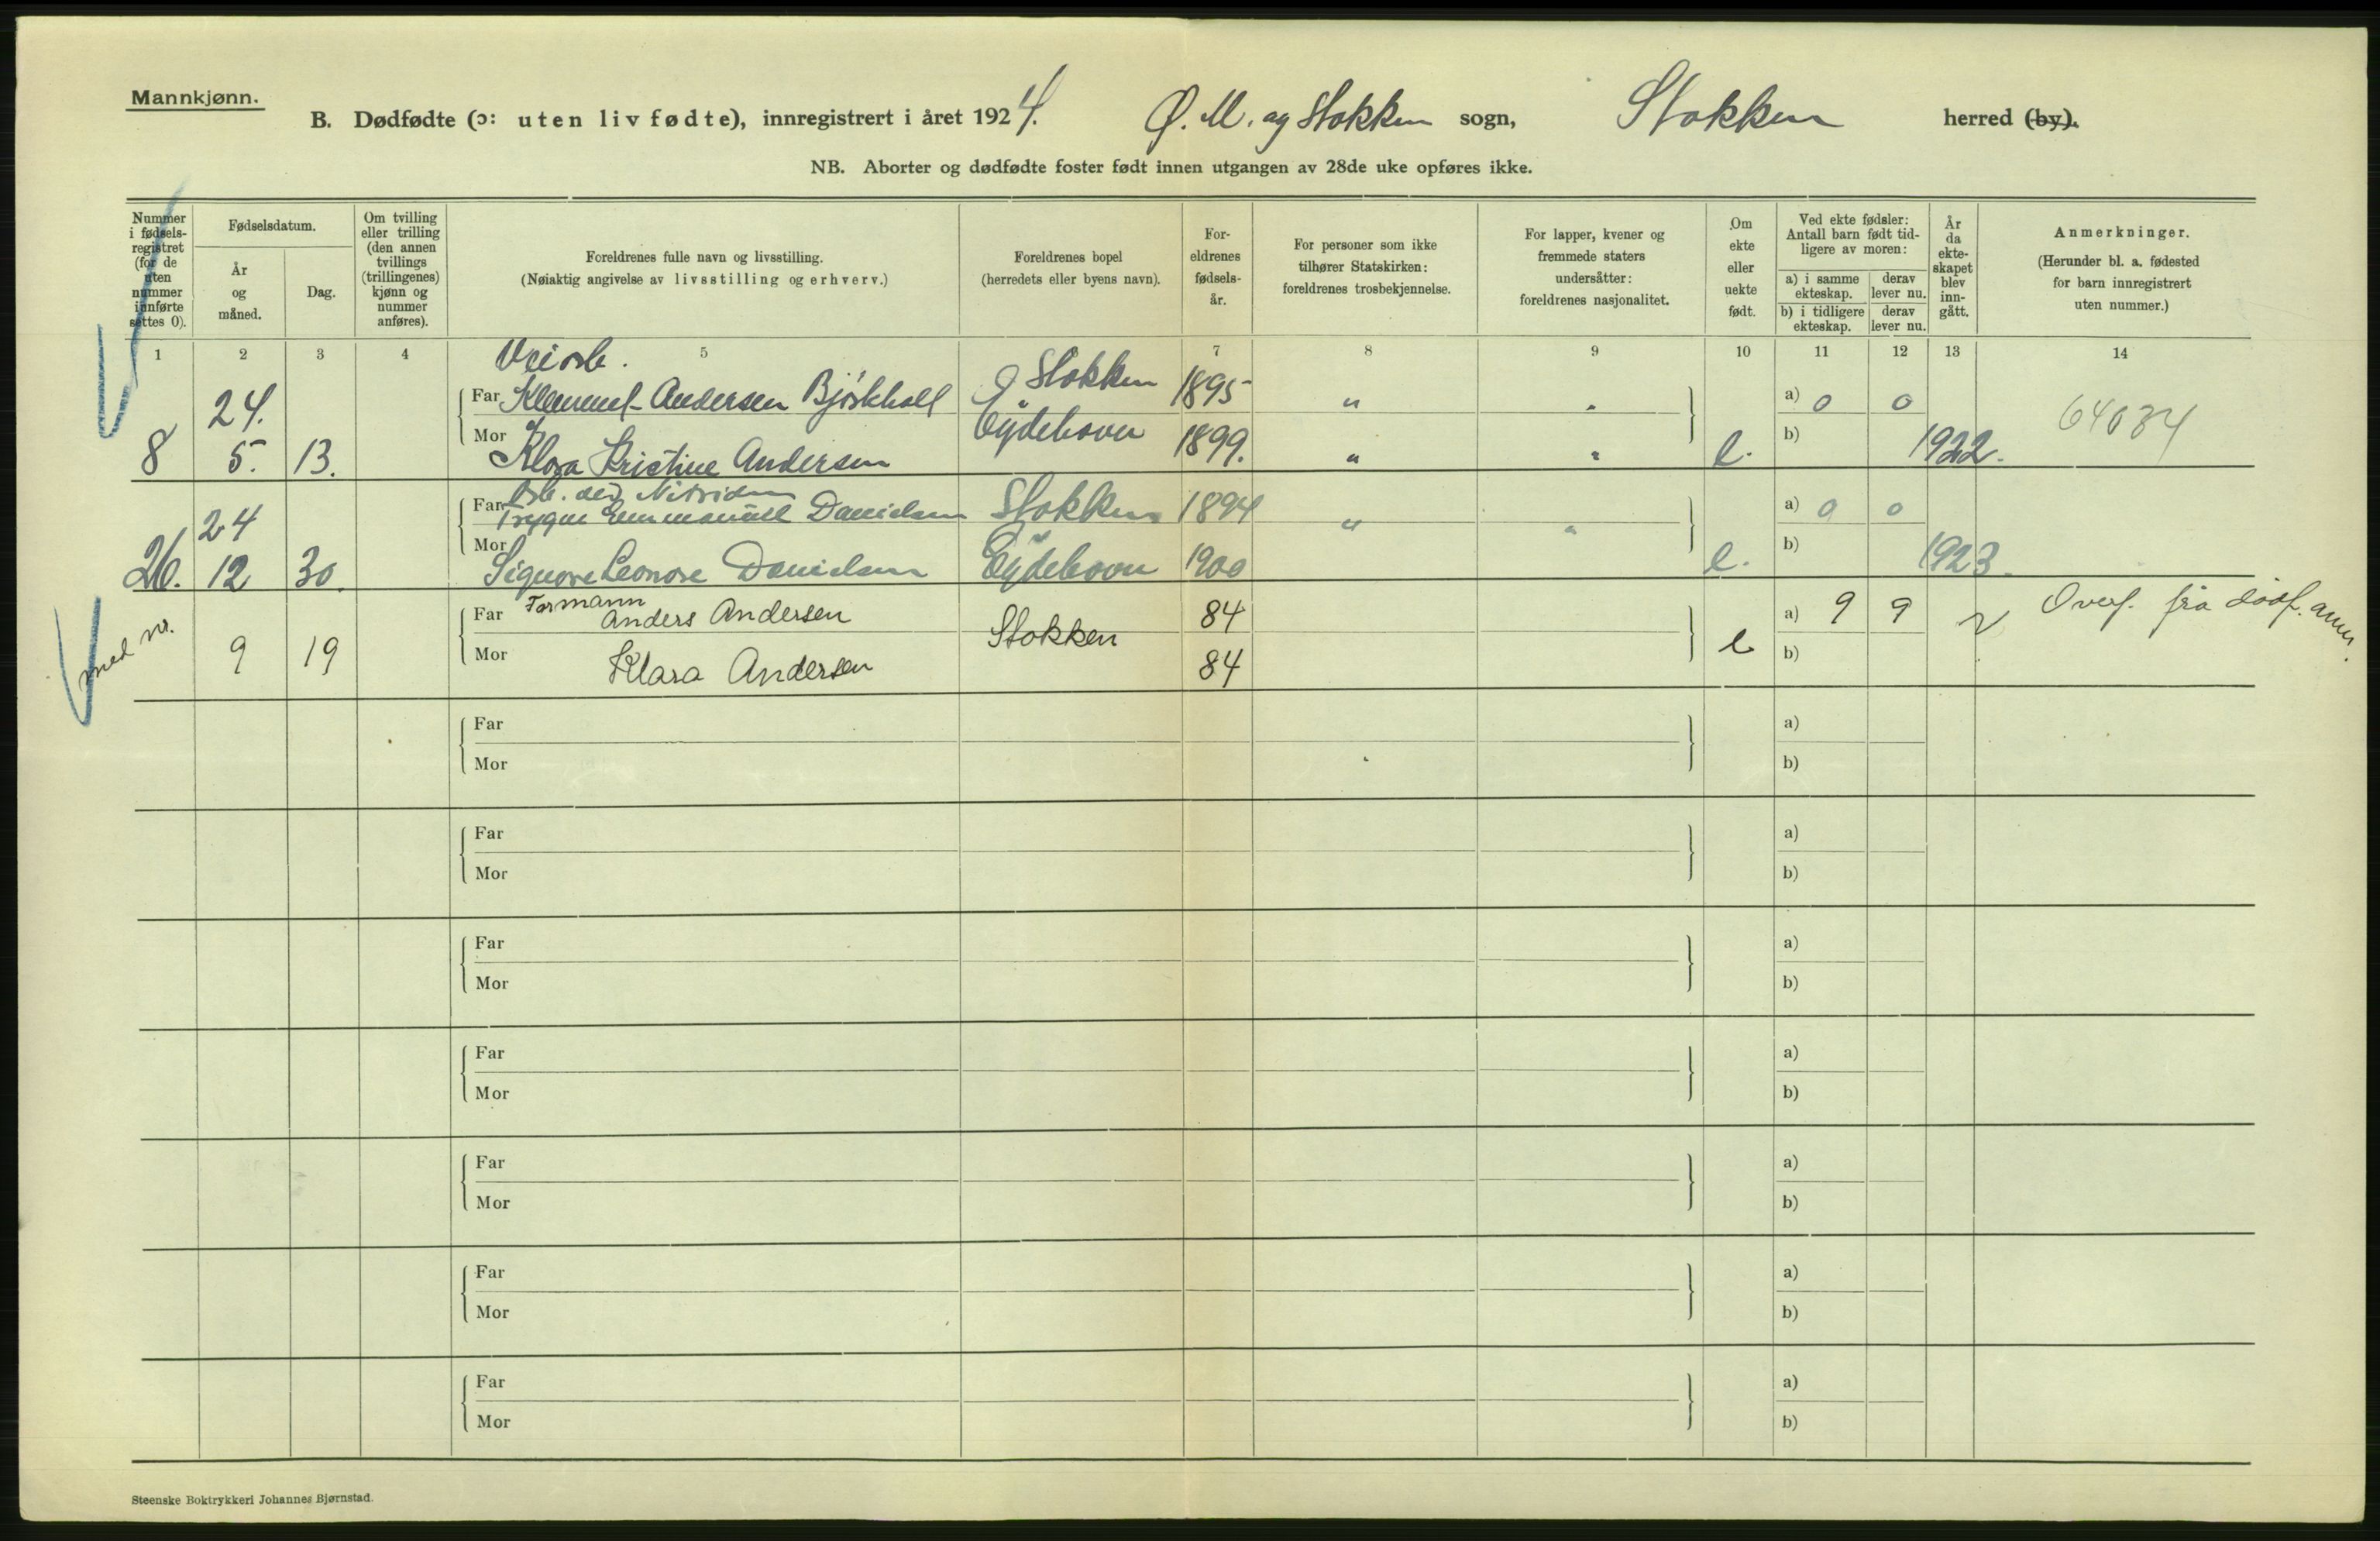 Mannkjønn.
B. Dødfødte (ɔ: uten liv fødte), innregistrert i året 1924. Ø. M. og Stokken sogn, Stokken herred (by).
NB. Aborter og dødfødte foster født innen utgangen av 28de uke opføres ikke.
Nummer i fødsels-registret (for de uten nummer innførte settes 0).
Fødselsdatum.
År og måned.
Dag.
Om tvilling eller trilling (den annen tvillings (trillingenes) kjønn og nummer anføres).
Foreldrenes fulle navn og livsstilling.
(Nøiaktig angivelse av livsstilling og erhverv.)
Foreldrenes bopel
(herredets eller byens navn).
For-eldrenes fødsels-år.
For personer som ikke tilhører Statskirken: foreldrenes trosbekjennelse.
For lapper, kvener og fremmede staters undersåtter: foreldrenes nasjonalitet.
Om ekte eller uekte født.
Ved ekte fødsler: Antall barn født tid-ligere av moren:
a) i samme ekteskap. derav lever nu.
b) i tidligere ekteskap. derav lever nu.
År da ekte-skapet blev inn-gått.
Anmerkninger.
(Herunder bl. a. fødested for barn innregistrert uten nummer.)
1 2 3 4 5 7 8 9 10 11 12 13 14
Far Klemmet Andersen Bjørkholl Stokken 1895 " " a) 0 0
24.
64084
8 5. 13. Mor Klara Kristine Andersen Eydehavn 1899. " " e. b) 1922.
Arb. ved Nitriden
Far Trygve Emmanuel Danielsen Stokken 1894 " " a) 0 0
24
26. 12 30. Mor Signore Leonore Danielsen Eydehavn 1900 e. b) 1923.
Formann
Far Anders Andersen 84 a) 9 9 Overf. fra dødf. anm.
med nr. 9 19 Stokken e
Mor Klara Andersen 84 b)
Far a)
Mor b)
Far a)
Mor b)
Far a)
Mor b)
Far a)
Mor b)
Far a)
Mor b)
Far a)
Mor b)
Far a)
Mor b)
Steenske Boktrykkeri Johannes Bjørnstad.